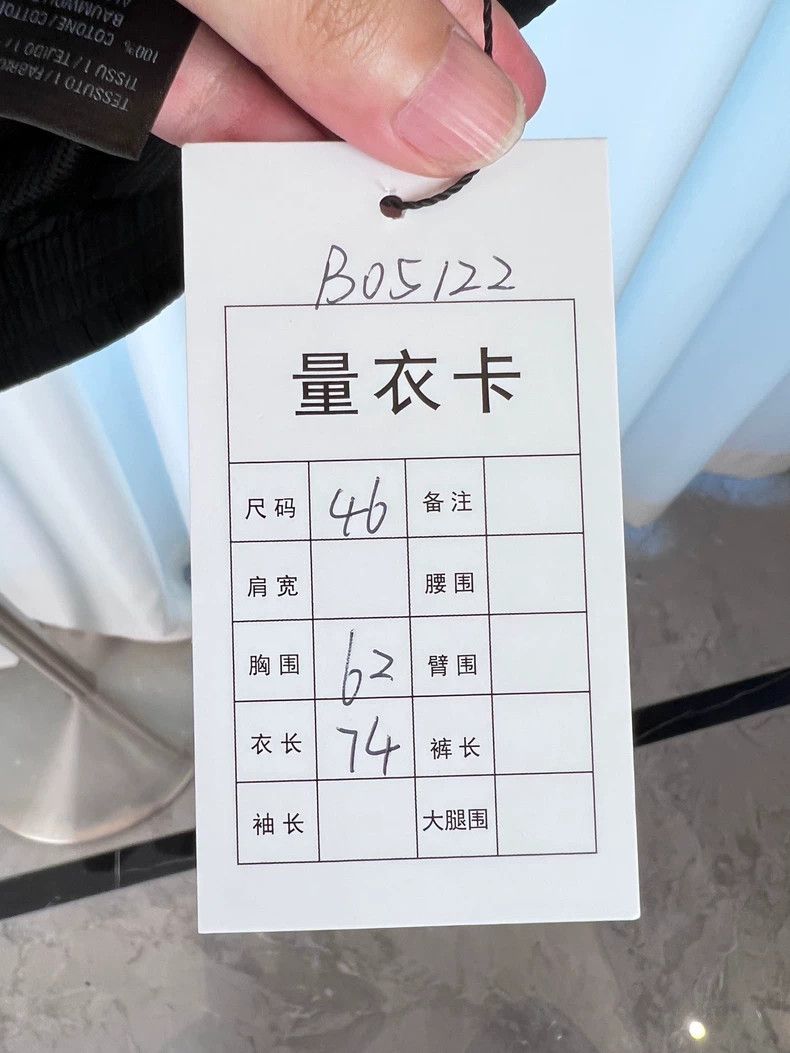 TESSUTO 1 / FABRIC
TISSU 1 / TEJIDO 1 /
100% COTONE / COTTON
B05122
量衣卡
尺码 46 备注
肩宽 腰围
胸围 62 臂围
衣长 74 裤长
袖长 大腿围